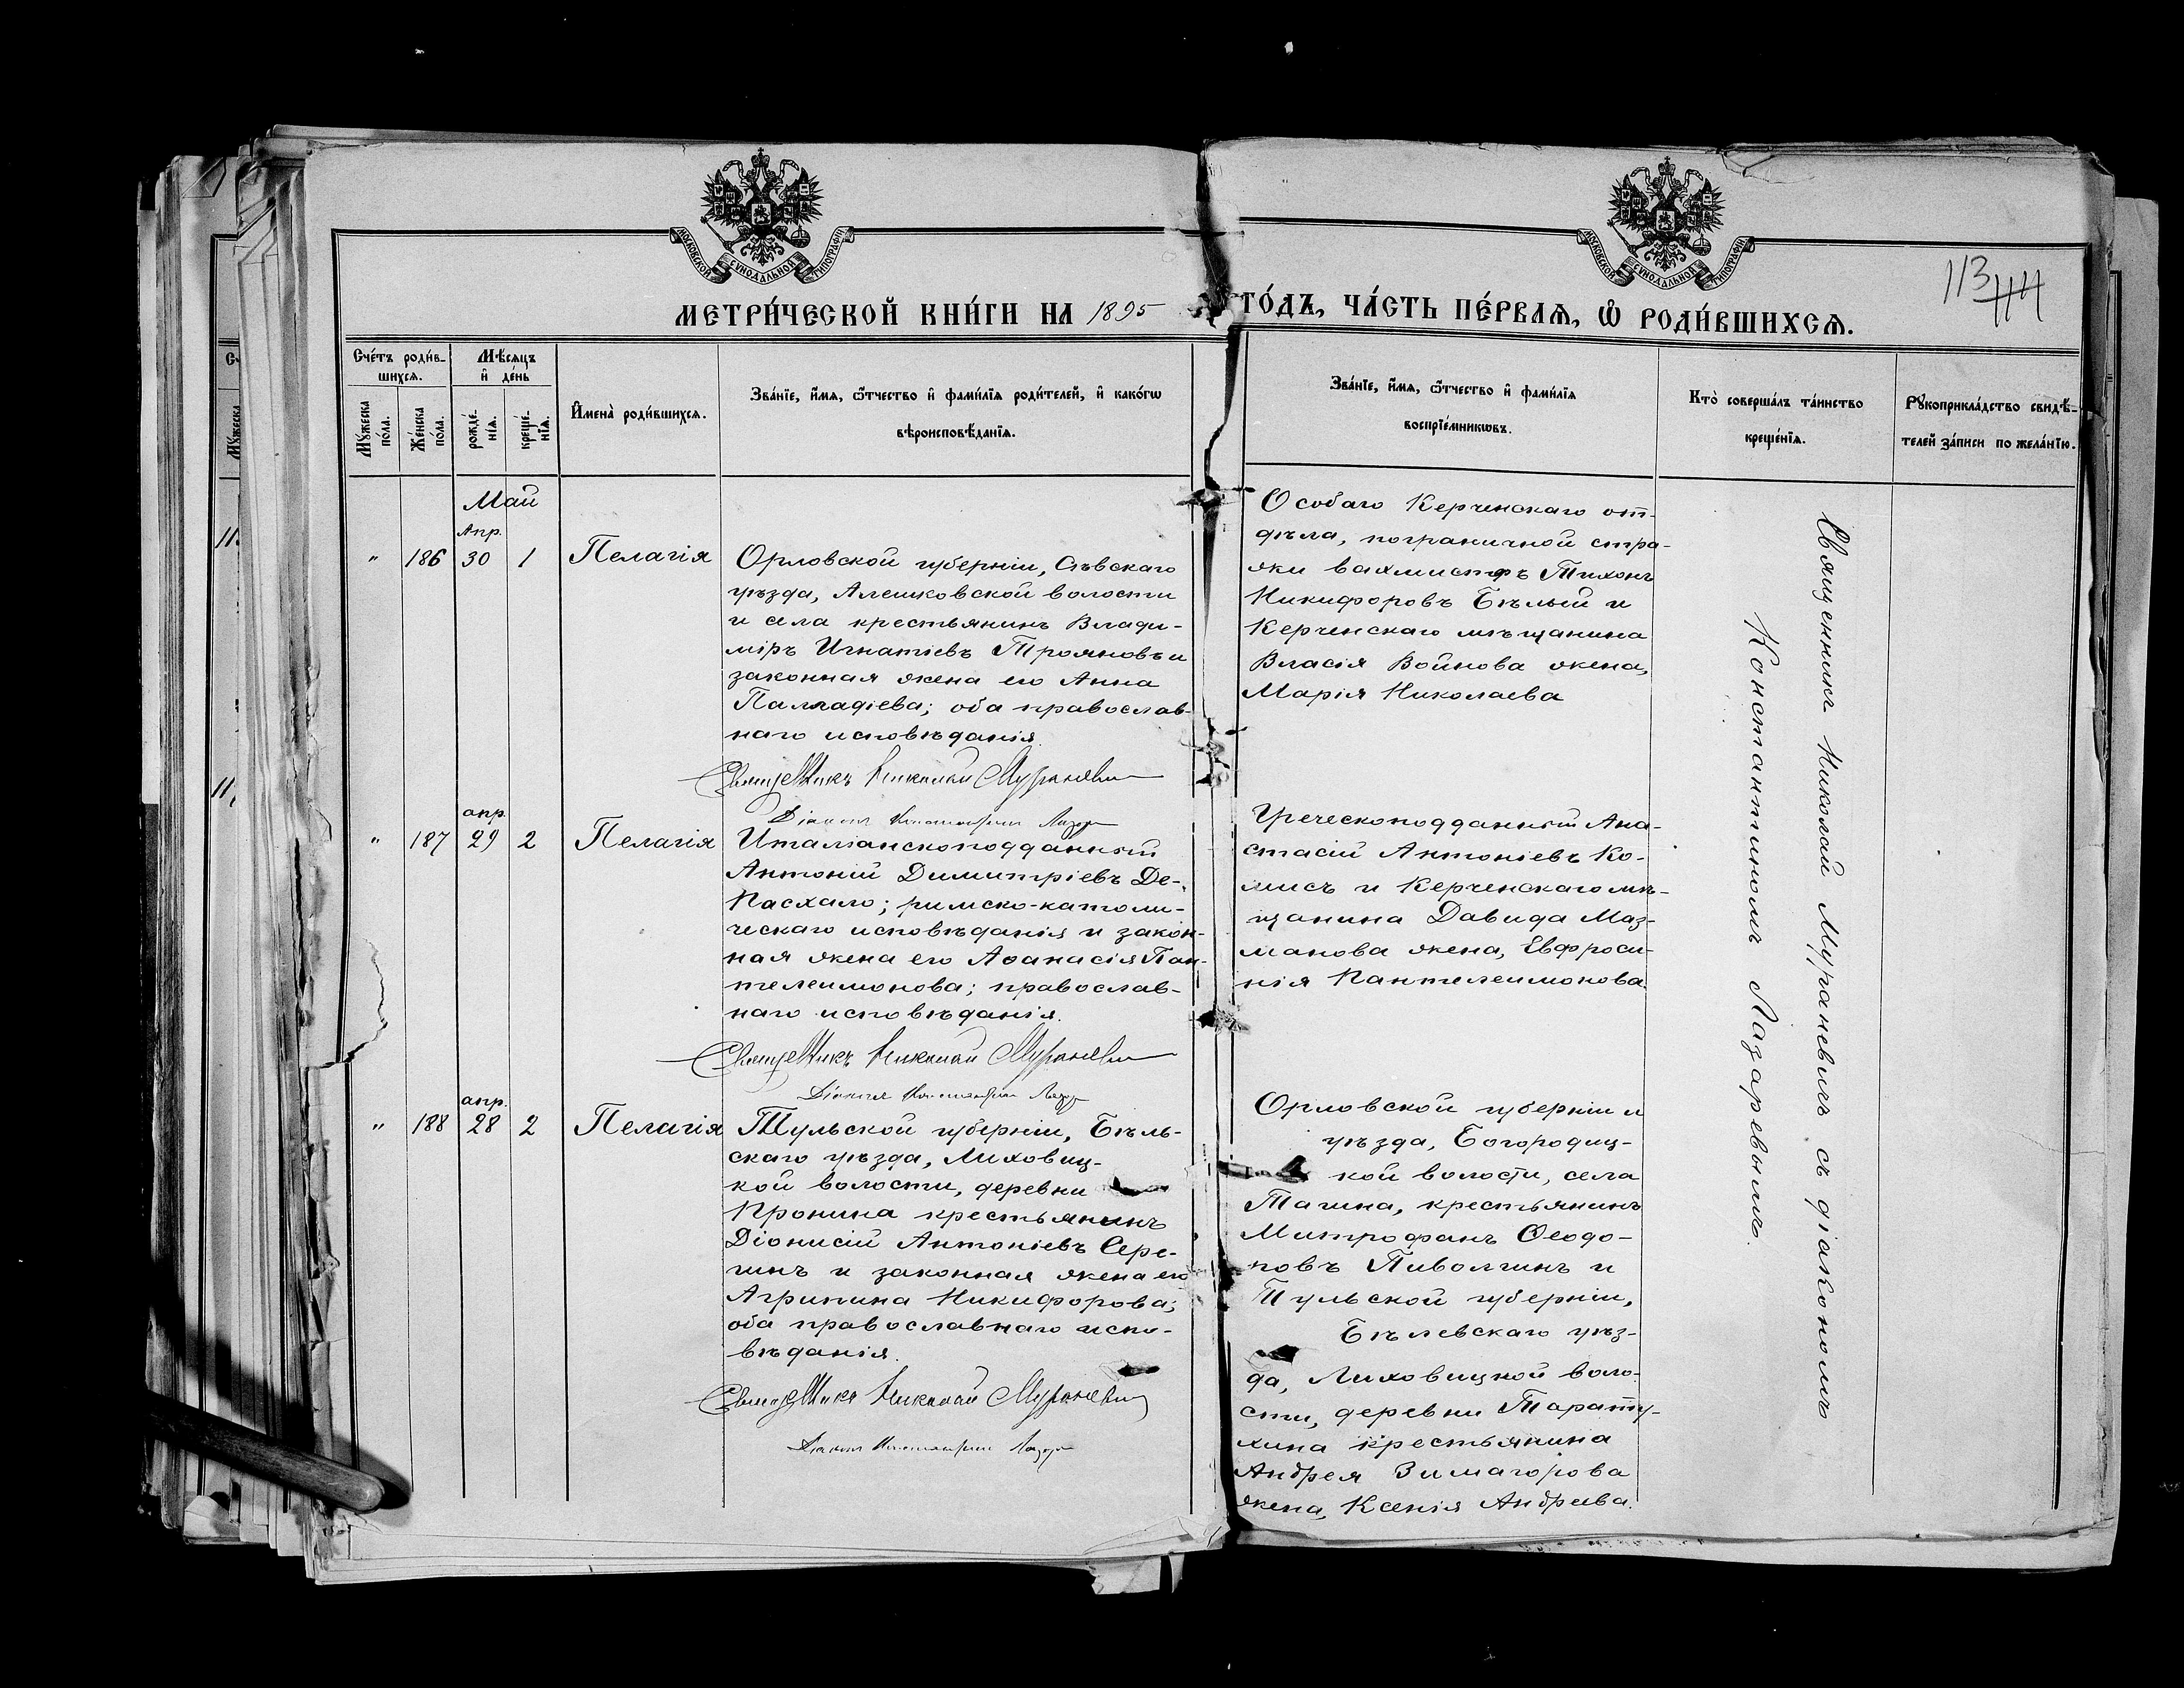 МОСКОВСКОЙ СѴНОДАЛЬНОЙ ТИПОГРАФІИ
МОСКОВСКОЙ СѴНОДАЛЬНОЙ ТИПОГРАФІИ
113
МЕТРИ́ЧЕСКОЙ КНИ́ГИ НА 1895 ГО́ДЪ, ЧА́СТЬ ПЕ́РВАЯ, Ѽ РОДИ́ВШИХСЯ.
Сче́тъ роди́в-
шихся.
Мꙋ́жеска по́ла.
Же́нска по́ла.
Мѣ́сяцъ
и҆ де́нь
рожде́-
нїя.
креще́-
нїя.
И҆мена̀ роди́вшихся.
Зва́нїе, и҆́мя, ѻ҆́тчество и҆ фами́лїя роди́телей, и҆ како́гѡ
вѣроисповѣ́данїя.
Зва́нїе, и҆́мя, ѻ҆́тчество и҆ фами́лїя
воспрїе́мникѡвъ.
Кто̀ соверша́лъ та́инство
креще́нїя.
Рꙋкоприкла́дство свидѣ́-
телей за́писи по жела́нїю.
Май
Апр.
" 186 30 1 Пелагія
Орловской губерніи, Сѣвскаго
уѣзда, Алешковской волости
и села крестьянинъ Влади-
міръ Игнатіевъ Трояновъ и
законная жена его Анна
Палладіева; оба православ-
наго исповѣданія.
Священникъ Николай Мураневич
Діаконъ Константин Лазар
Особаго Керченскаго от-
дѣла, пограничной стра-
жи вахмистръ Тихонъ
Никифоровъ Бѣлый и
Керченскаго мѣщанина
Власія Войнова жена,
Марія Николаева
апр.
" 187 29 2 Пелагія
Италіанскоподданный
Антоній Димитріевъ Де-
Пасхало; римско-католи-
ческаго исповѣданія и закон-
ная жена его Аѳанасія Пан-
телеимонова; православ-
наго исповѣданія.
Священникъ Николай Мураневич
Діаконъ Константин Лазар
Греческоподданный Ана-
стасій Антоніевъ Ко-
мисъ и Керченскаго мѣ-
щанина Давида Маз-
манова жена, Евфроси-
нія Пантелеимонова.
апр.
" 188 28 2 Пелагія
Тульской губерніи, Бѣль-
скаго уѣзда, Лиховиц-
кой волости, деревни
Пронина крестьянинъ
Діонисій Антоніевъ Сере-
гинъ и законная жена его
Агрипина Никифорова;
оба православнаго испо-
вѣданія.
Священникъ Николай Мураневич
Діаконъ Константин Лазар
Орловской губерніи и
уѣзда, Богородиц-
кой волости, села
Тагина, крестьянинъ
Митрофанъ Ѳеодо-
ровъ Пиволгинъ и
Тульской губерніи,
Бѣлевскаго уѣз-
да, Лиховицкой воло-
сти, деревни Тарату-
хина крестьянина
Андрея Зимагорова
жена, Ксенія Андреева.
Священникъ Николай Мураневичъ съ діакономъ
Константиномъ Лазаревымъ.